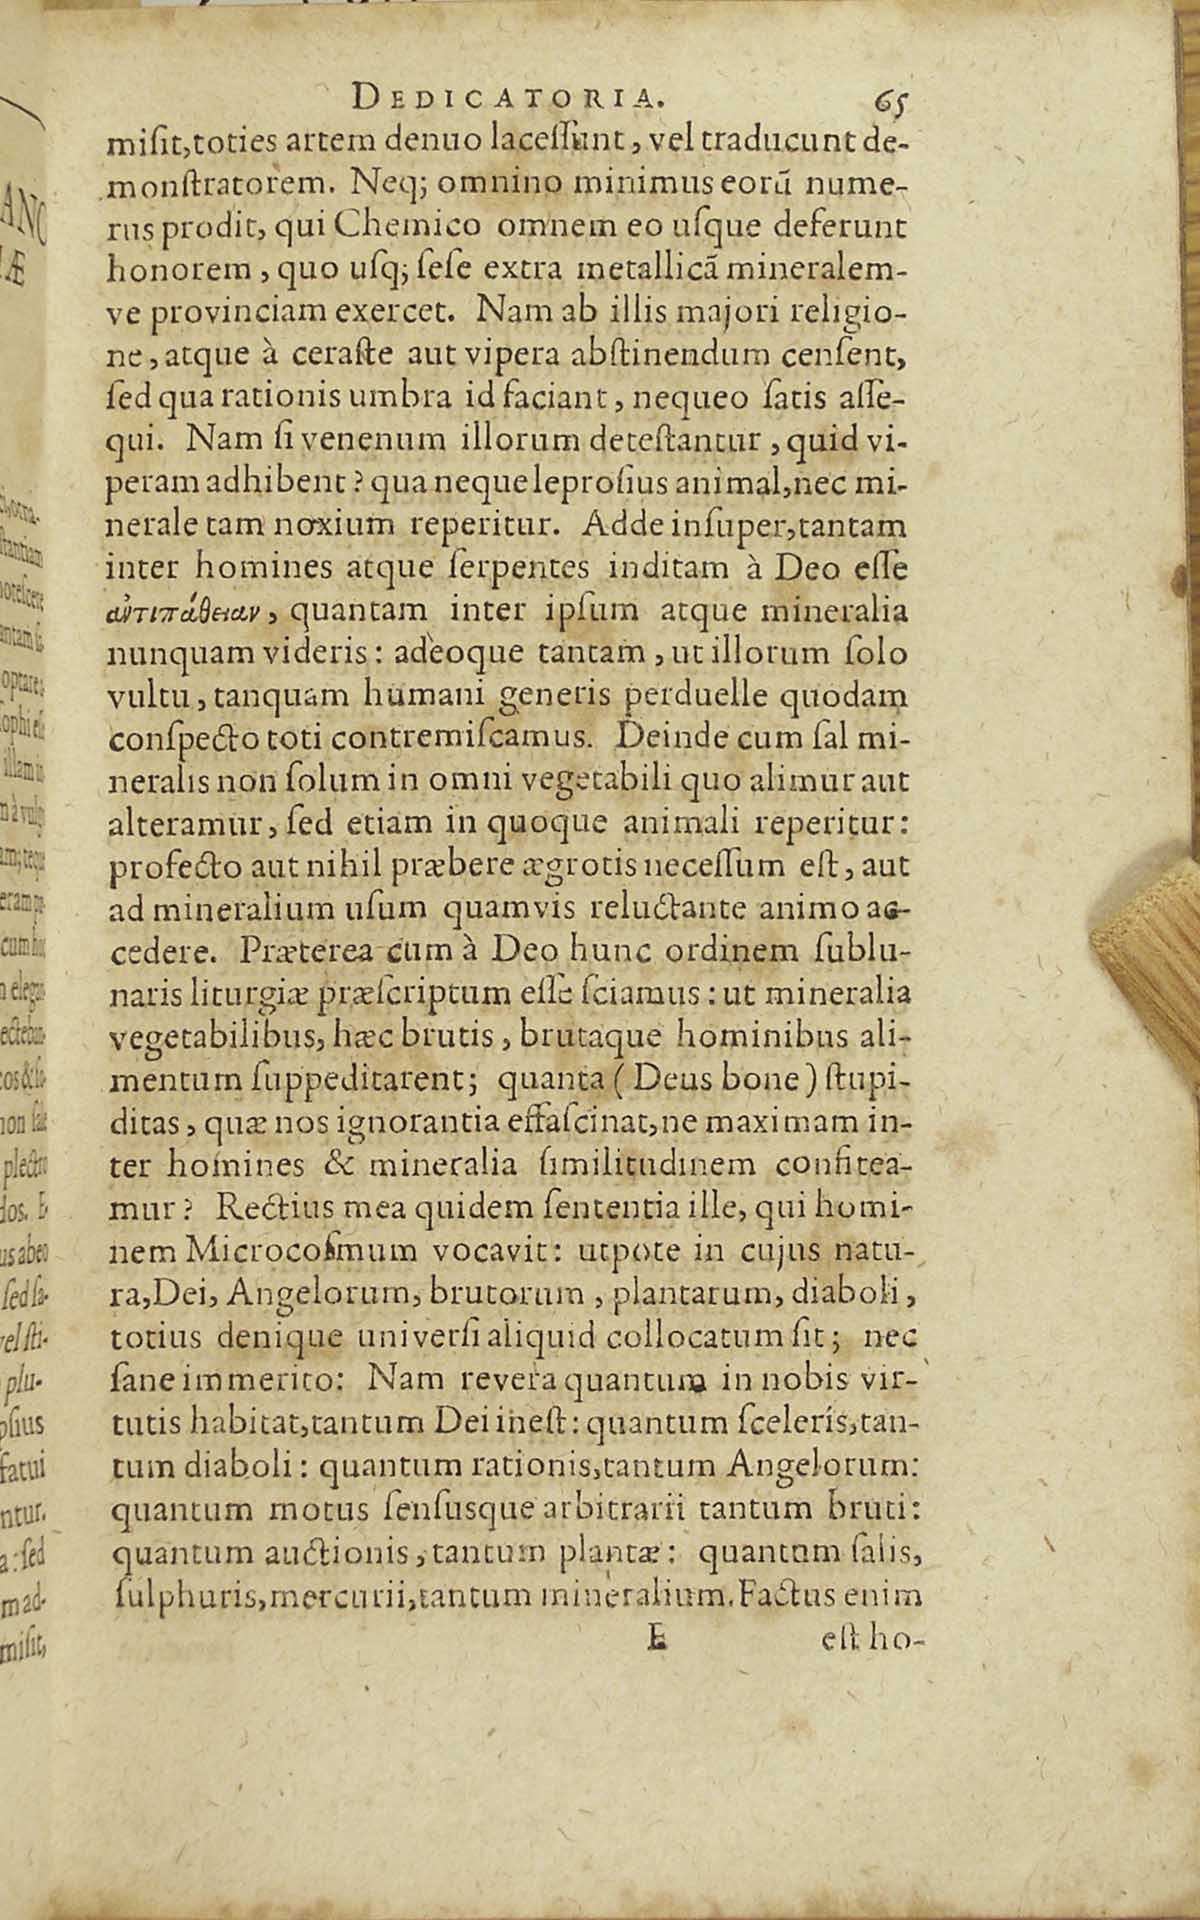 DEDICATORIA. 65
miſit, toties artem denuo laceſſunt, vel traducunt de-
monſtratorem. Neq; omnino minimus eorũ nume-
rus prodit, qui Chemico omnem eo uſque deferunt
honorem, quo uſq; ſeſe extra metallicã mineralem-
ve provinciam exercet. Nam ab illis majori religio-
ne, atque à ceraſte aut vipera abſtinendum cenſent,
ſed qua rationis umbra id faciant, nequeo ſatis aſſe-
qui. Nam ſi venenum illorum deteſtantur, quid vi-
peram adhibent? qua neque leproſius animal, nec mi-
nerale tam noxium reperitur. Adde inſuper, tantam
inter homines atque ſerpentes inditam à Deo eſſe
ἀντιπάθειαν, quantam inter ipſum atque mineralia
nunquam videris: adèoque tantam, ut illorum ſolo
vultu, tanquam humani generis perduelle quodam
conſpecto toti contremiſcamus. Deinde cum ſal mi-
neralis non ſolum in omni vegetabili quo alimur aut
alteramur, ſed etiam in quoque animali reperitur:
profecto aut nihil præbere ægrotis neceſſum eſt, aut
ad mineralium uſum quamvis reluctante animo ac-
cedere. Præterea cum à Deo hunc ordinem ſublu-
naris liturgiæ præſcriptum eſſe ſciamus: ut mineralia
vegetabilibus, hæc brutis, brutaque hominibus ali-
mentum ſuppeditarent; quanta (Deus bone) ſtupi-
ditas, quæ nos ignorantia effaſcinat, ne maximam in-
ter homines & mineralia ſimilitudinem confitea-
mur? Rectius mea quidem ſententia ille, qui homi-
nem Microcoſmum vocavit: utpote in cujus natu-
ra, Dei, Angelorum, brutorum, plantarum, diaboli,
totius denique univerſi aliquid collocatum ſit; nec
ſane immerito: Nam revera quantum in nobis vir-
tutis habitat, tantum Dei ineſt: quantum ſceleris, tan-
tum diaboli: quantum rationis, tantum Angelorum:
quantum motus ſenſusque arbitrarii tantum bruti:
quantum auctionis, tantum plantæ: quantum ſalis,
ſulphuris, mercurii, tantum mineralium. Factus enim
E eſt ho-